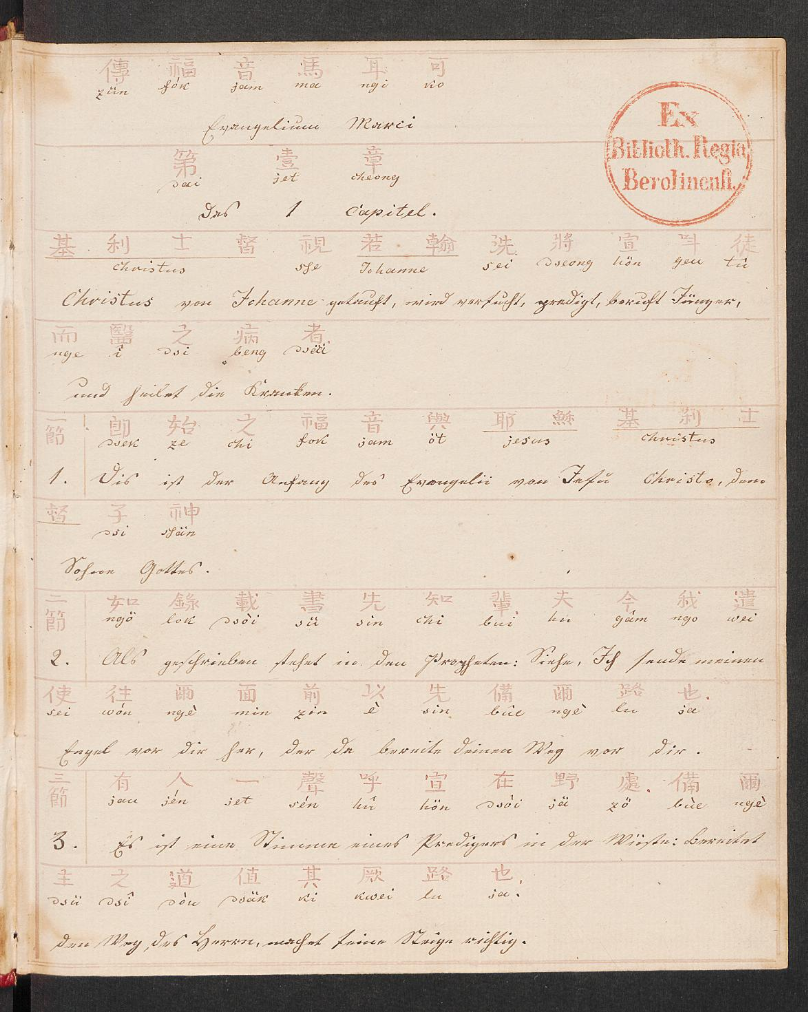 傳 福 音 馬 耳 可
zün fók jam ma ngi ko
Evangelium Marci
Ex
Biblioth. Regia
Berolinensi.
第 壹 章
dai jet cheong
Das 1 Capitel.
基 利 士 督 視 若 · 翰 洗 將 宣 斗 徒
christus she Johanne sei dseong hön geu tû
Christus von Johanne getauft, wird versucht, predigt, beruft Jünger,
而 醫 之 病 者
nge i dsi beng dseü
und heilet die Kranken.
一節 即 始 之 福 音 與 耶 穌 基 利 士
dsek ze chi fok jam öt jesus christus
1. Dis ist der Anfang des Evangelii von Jesu Christo, dem
督 子 神
dsi shän
Sohne Gottes.
二節 如 錄 載 書 先 知 輩 夫 今 我 遣
ngö lok dsôi sü sin chi buì hu gám ngo wei
2. Als geschrieben stehet in den Propheten: Siehe, Ich sende meinen
使 往 爾 面 前 以 先 備 爾 路 也.
sei wón ngè min zin è sin bùe ngè lu ja
Engel vor dir her, der da bereite deinen Weg vor dir.
三節 有 人 一 聲 呼 宣 在 野 處. 備 爾
jau jén jet sén hû hön dsôi jä zö bùe ngè
3. Es ist eine Stimme eines Predigers in der Wüste: bereitet
主 之 道 值 其 厥 路 也.
dsü dsî dóu dsäk ki kwei lu ja.
den Weg des Herrn, machet seine Steige richtig.